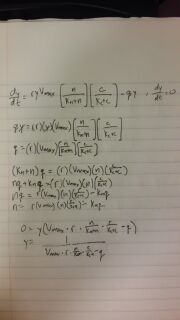 dy/dt = ry Vmax [n/(Kn+n)] [c/(Kc+c)] - qy , dy/dt = 0
qy = (r)(y)(Vmax) [n/(Kn+n)] [c/(Kc+c)]
q = (r)(Vmax) [n/(Kn+n)] [c/(Kc+c)]
(Kn+n)q = (r)(Vmax)(n)(c/(Kc+c))
nq + Knq = (r)(Vmax)(n)(c/(Kc+c))
nq = r(Vmax)(n)(c/(Kc+c)) - Knq
n = r(Vmax)(n)(c/(Kc+c)) - Knq
0 = y(Vmax · r · n/(Kn+n) · c/(Kc+c) - q)
y = 1/(Vmax · r · n/(Kn+n) · c/(Kc+c) - q)